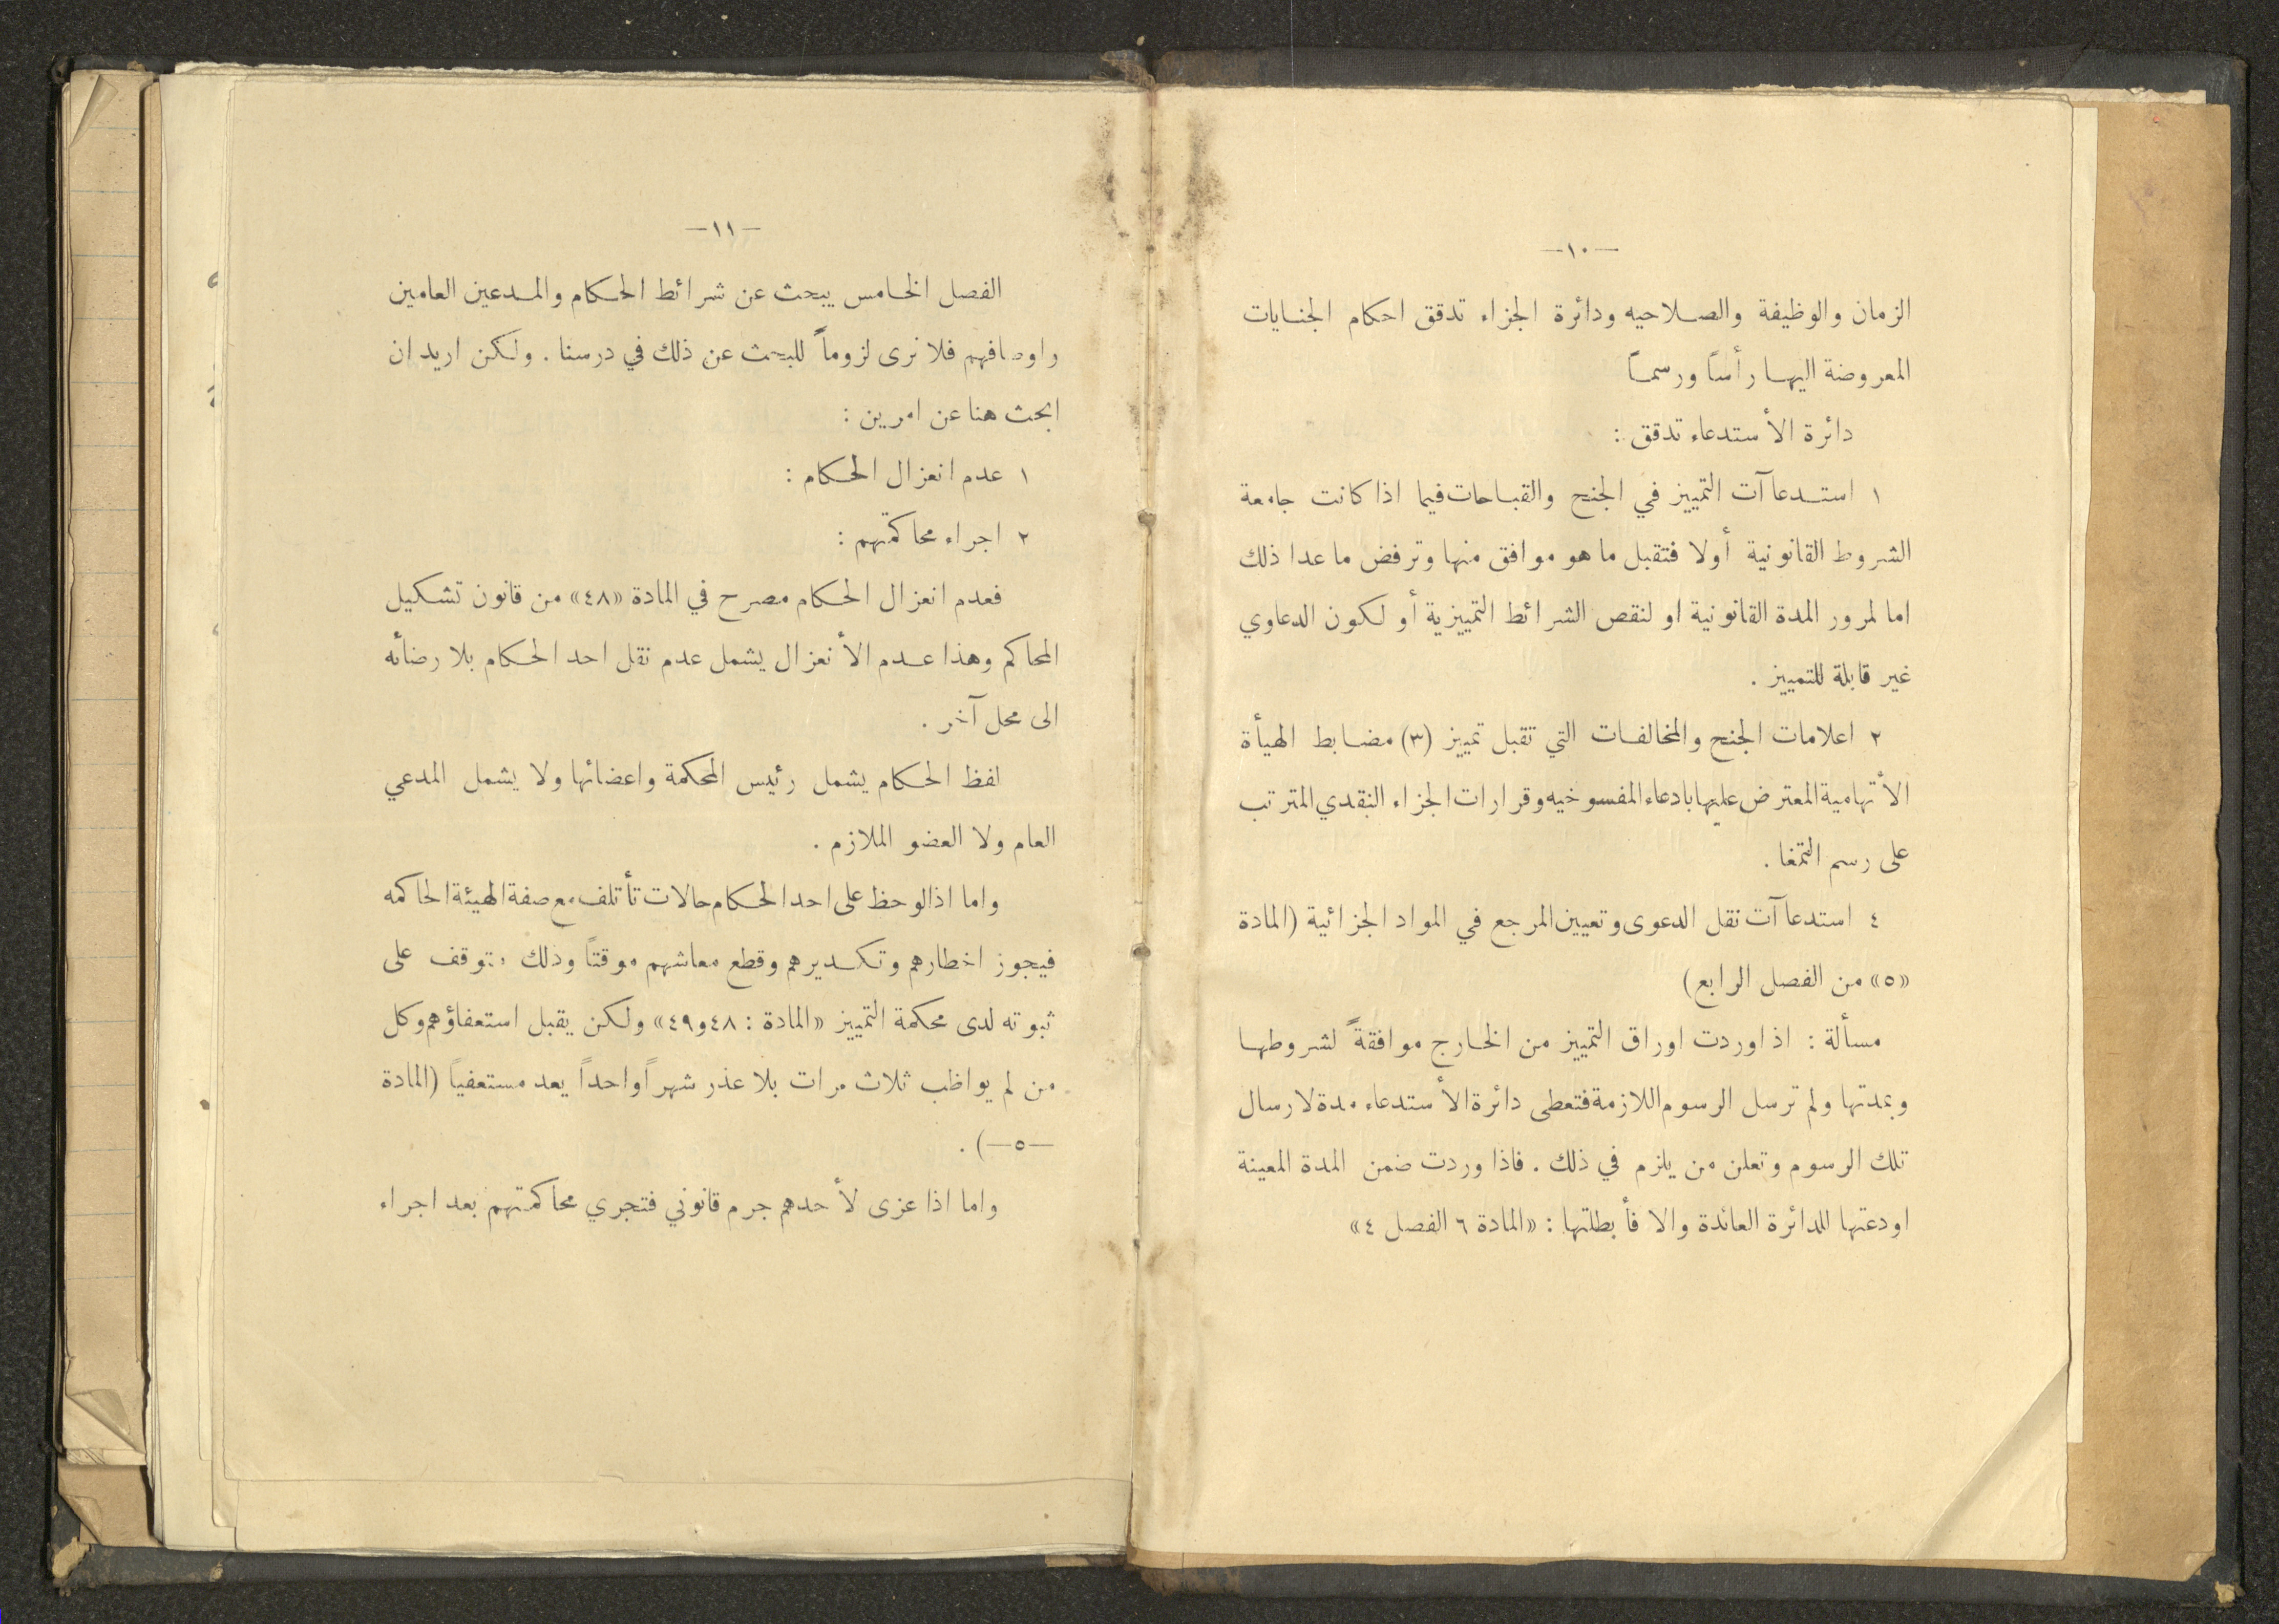 —١٠—
الزمان والوظيفة والصلاحيه ودائرة الجزاء تدقق احكام الجنايات
المعروضة اليها رأساً ورسماً
دائرة الأستدعاء تدقق :
١ استدعاآت التمييز في الجنح والقباحات فيما اذا كانت جامعة
الشروط القانونية أولا فتقبل ما هو موافق منها وترفض ما عدا ذلك
اما لمرور المدة القانونية او لنقص الشرائط التمييزية أو لكون الدعاوي
غير قابلة للتمييز .
٢ اعلامات الجنح والمخالفات التي تقبل تمييز (٣) مضابط الهيأة
الأتهامية المعترض عليها بادعاء المفسوخيه وقرارات الجزاء النقدي المترتب
على رسم التمغا .
٤ استدعاآت نقل الدعوى وتعيين المرجع في المواد الجزائية (المادة
«٥» من الفصل الرابع)
مسألة : اذا وردت اوراق التمييز من الخارج موافقةً لشروطها
وبمدتها ولم ترسل الرسوم اللازمة فتعطى دائرة الأستدعاء مدة لارسال
تلك الرسوم وتعلن من يلزم في ذلك . فاذا وردت ضمن المدة المعينة
اودعتها للدائرة العائدة والا فأبطلتها : «المادة ٦ الفصل ٤»
—١١—
الفصل الخامس يبحث عن شرائط الحكام والمدعين العامين
واوصافهم فلا نرى لزوماً للبحث عن ذلك في درسنا . ولكن اريد ان
ابحث هنا عن امرين :
١ عدم انعزال الحكام :
٢ اجراء محاكمتهم :
فعدم انعزال الحكام مصرح في المادة «٤٨» من قانون تشكيل
المحاكم وهذا عدم الأنعزال يشمل عدم نقل احد الحكام بلا رضائه
الى محل آخر .
لفظ الحكام يشمل رئيس المحكمة واعضائها ولا يشمل المدعي
العام ولا العضو الملازم .
واما اذا لوحظ على احد الحكام حالات تأتلف مع صفة الهيئة الحاكمه
فيجوز اخطارهم وتكديرهم وقطع معاشهم موقتاً وذلك متوقف على
ثبوته لدى محكمة التمييز «المادة : ٤٨و٤٩» ولكن يقبل استعفاؤهم وكل
من لم يواظب ثلاث مرات بلا عذر شهراً واحداً يعد مستعفياً (المادة
—٥—) .
واما اذا عزى لأحدهم جرم قانوني فتجري محاكمتهم بعد اجراء